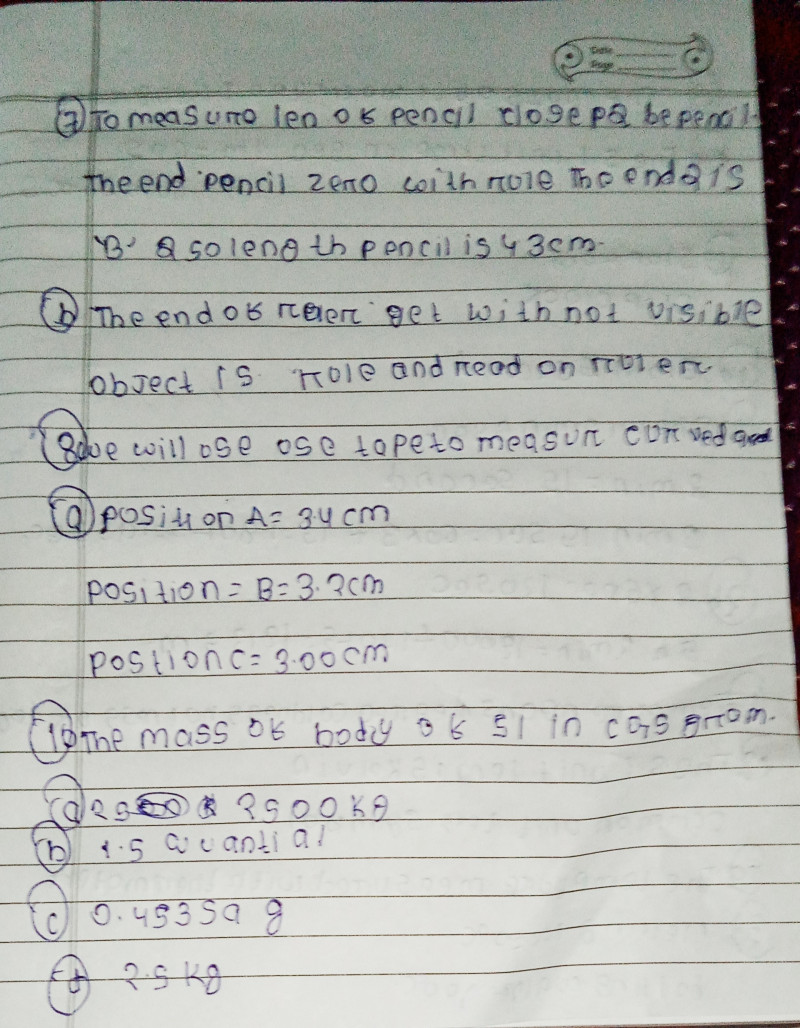 Date
Page
7 To measuro len of pencil close pQ be pencil
The end pencil zero with role The end Q is
'B' Q so length pencil is 43cm.
b The end of get with not visible
object is role and read on ruler
8 we will ose ose tape to measur curved
9 position A= 3.4 cm
position = B= 3.2cm
postion C= 3.00cm
10 The mass of body of SI in CGS grom.
a 2500kg
b 1.5 quantial
c 0.45359 g
d 2.5 kg